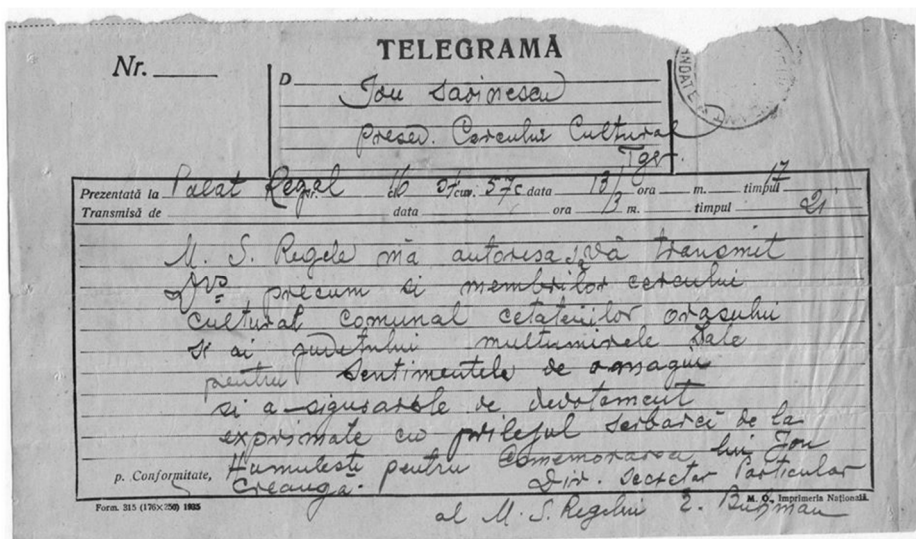 TELEGRAMĂ
Nr.
D Ion Savinescu
Președ. Cercului Cultural
Tgv.
Prezentată la Palat Regal nr. cuv. 57c data 13/ ora m. timpul 17
Transmisă de data ora /3 m. timpul 21
M. S. Regele mă autoresa să vă transmit
Dvs precum si membrilor cercului
cultural comunal cetatenilor orasului
si ai județului multumirele Sale
pentru sentimentele de omagiu
si a-sigurarele de devotament
exprimate cu prilejul serbarei de la
Humulesti pentru Comemorarea lui Ion
Creangă. Dir. Secretar Particular
p. Conformitate,
al M. S. Regelui
Form. 315 (176×250) 1935
M. O., Imprimeria Națională.